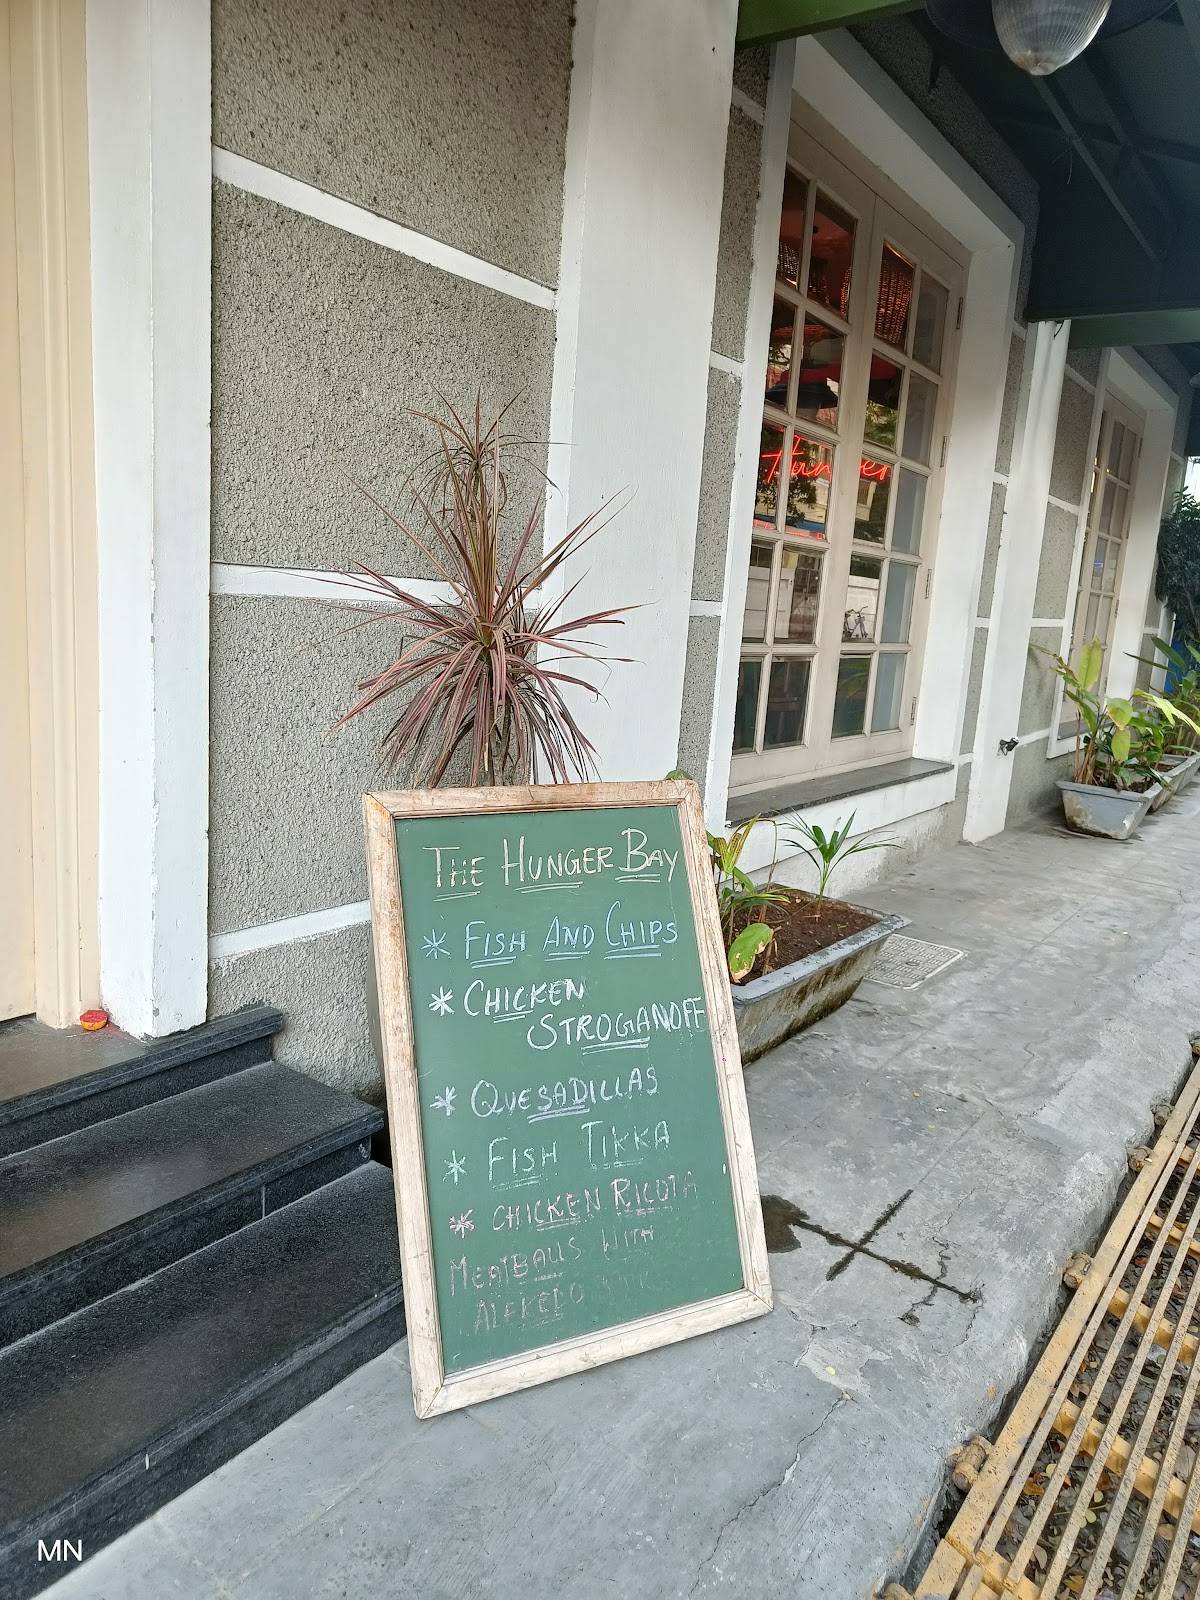 Hunger
THE HUNGER BAY
* FISH AND CHIPS
* CHICKEN
STROGANOFF
* QUESADILLAS
* FISH TIKKA
* CHICKEN RICOTA
MEATBALLS WITH
ALFREDO
MN